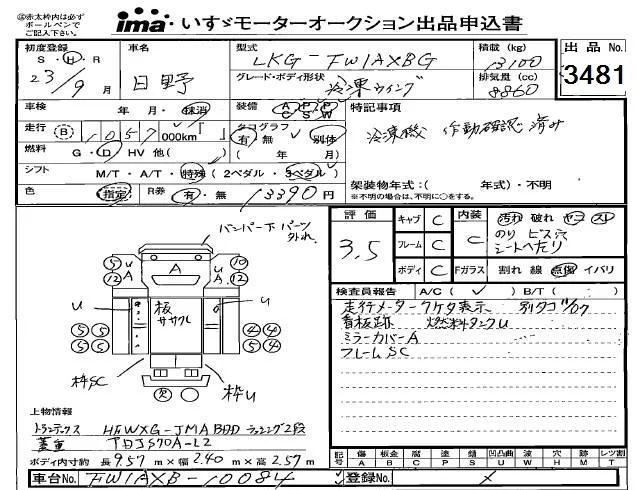 ㊟赤太枠内は必ず
ボールペンで
ご記入下さい。
ima いすゞモーターオークション出品申込書
初度登録 車名 型式 積載 (kg) 出品No.
S・H・R 日野 LKG-FW1AXBG 13100 3481
23/9月 グレード・ボディ形状 冷凍ウイング 排気量 (cc) 8860
車検 年・月・抹消 装備 AC PS PW 特記事項
走行 (B) 1057 000km タコグラフ 有・無 別体 冷凍機 作動確認済み
燃料 G・D・HV 他( ) ( 年 月)
シフト M/T・A/T・特殊 (2ペダル・3ペダル) 架装物年式:( 年式)・不明
色 指定 R券 有・無 13390円 ※不明の場合は、不明に○をする。
評価 3.5 キャブ C 内装 C 汚れ 破れ ヤコゲ スレ
フレーム C のり ビス穴
シートへたり
ボディ C Fガラス 割れ 線 点傷 イバリ
バンパー下 パーツ
外れ
検査員報告 A/C( ✓ ) B/T( )
走行メーター7ケタ表示
看板跡 燃料タンクU
ミラーカバーA
フレームSC
5 U A 10
12 A A 12
U 板 ササクレ U
5 5 4 4
5 5 4 4
枠SC 枠U
欠
上物情報
トランテックス
ボディ内寸約 長 9.57 m×幅 2.40 m×高 2.57 m
記号 傷 A 板金 B 腐食 C 凹 P 塗 S 錆 凹凸曲 U 波 W 穴 H 跡 M レツ割 T
車台No. FW1AXB-10084 登録No.